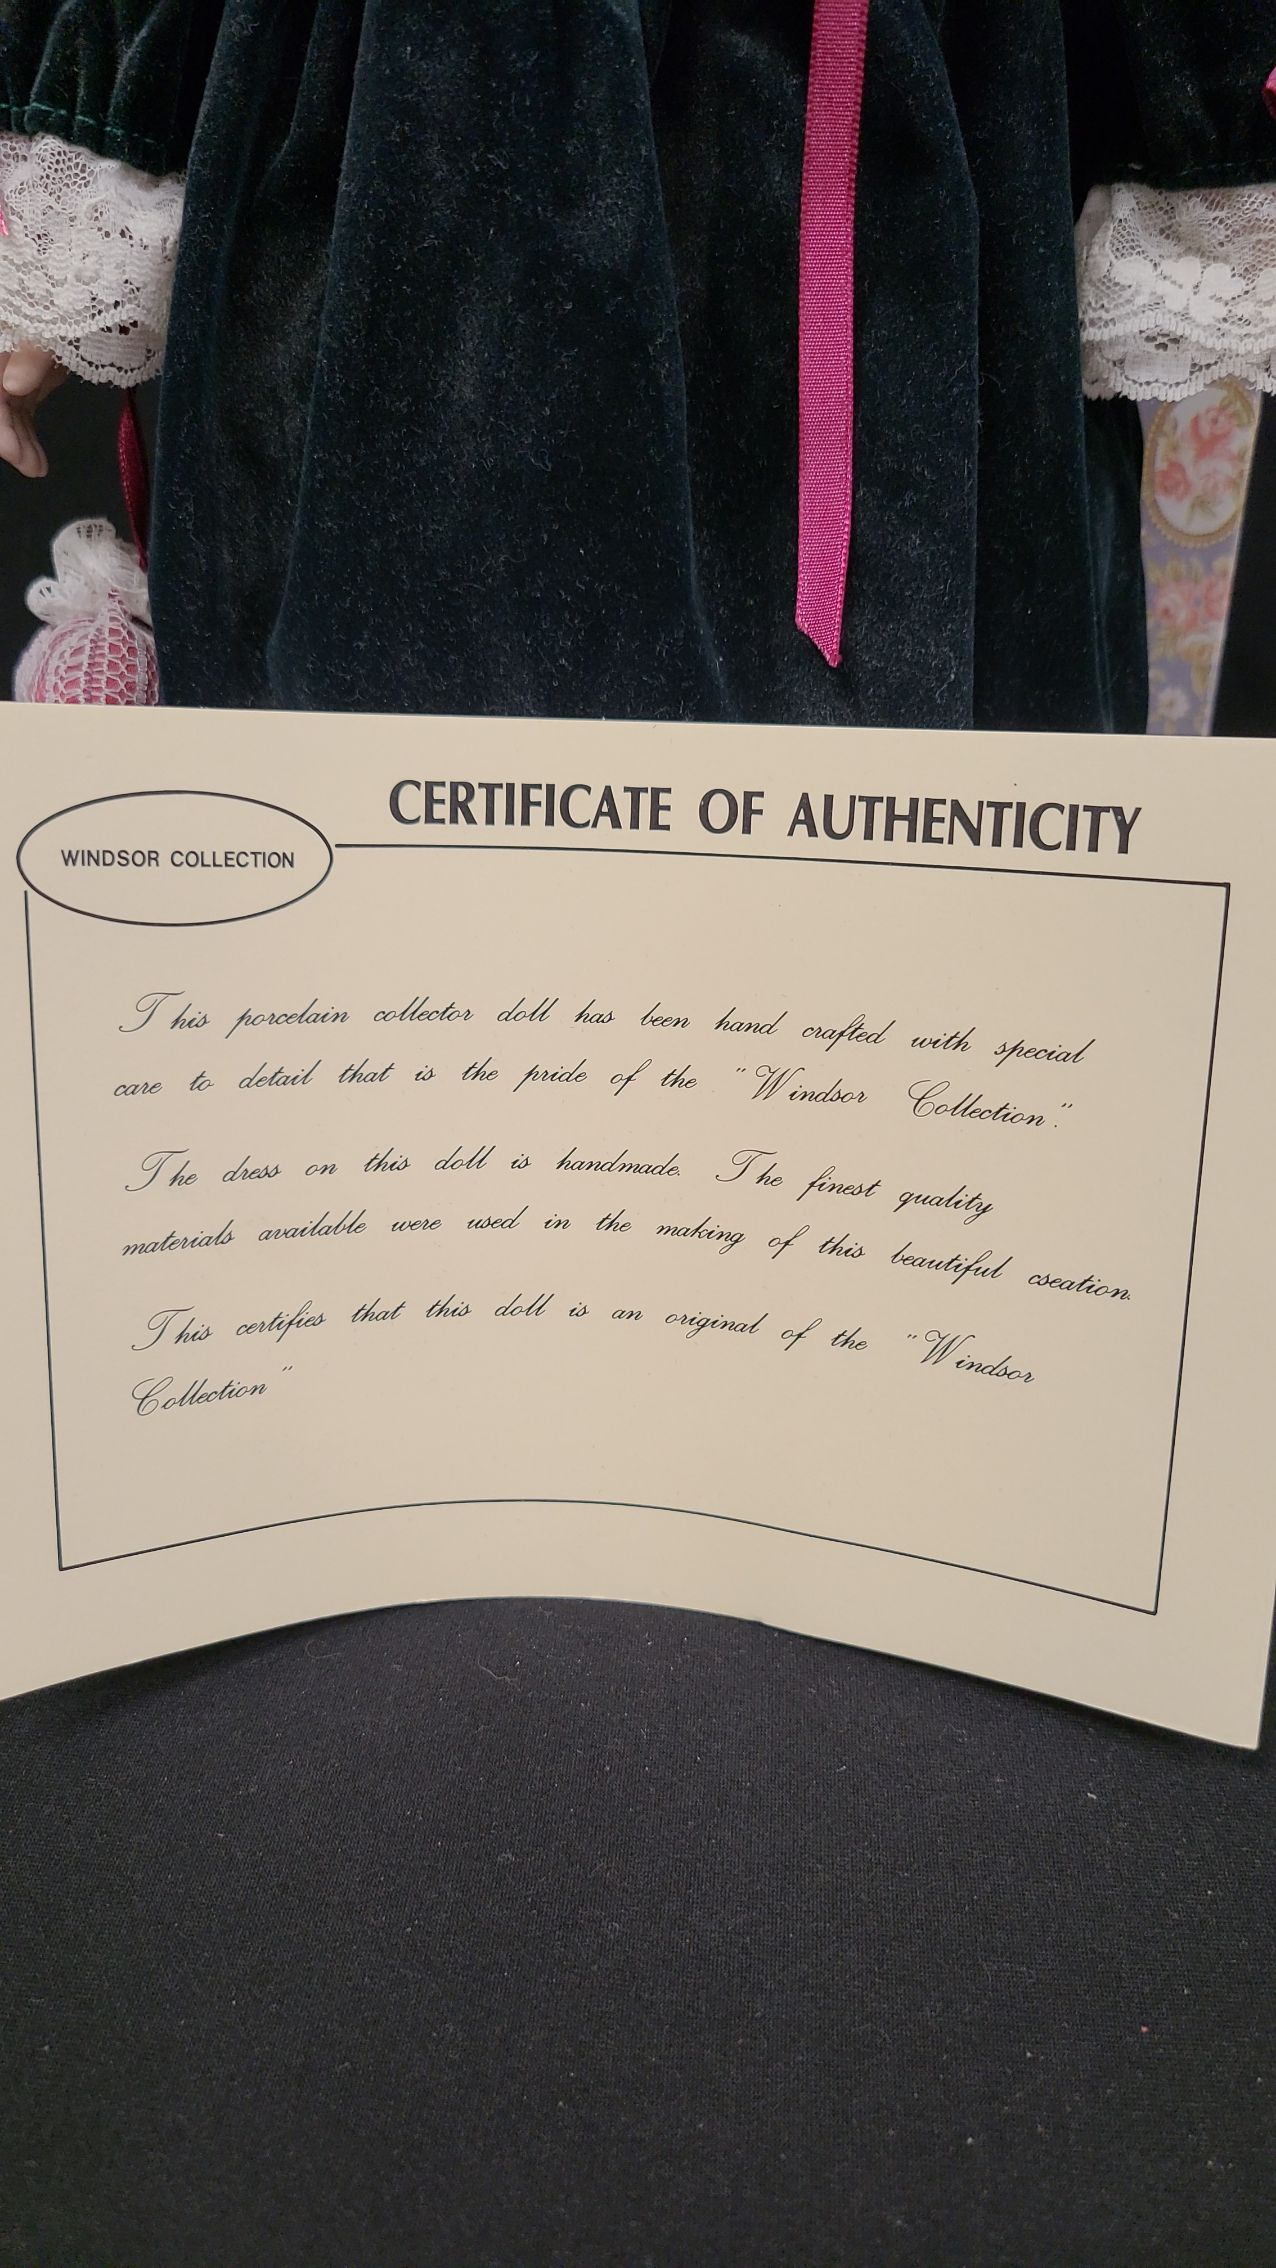 CERTIFICATE OF AUTHENTICITY
WINDSOR COLLECTION
This porcelain collector doll has been hand crafted with special
care to detail that is the pride of the "Windsor Collection".
The dress on this doll is handmade. The finest quality
materials available were used in the making of this beautiful cseation.
This certifies that this doll is an original of the "Windsor
Collection"